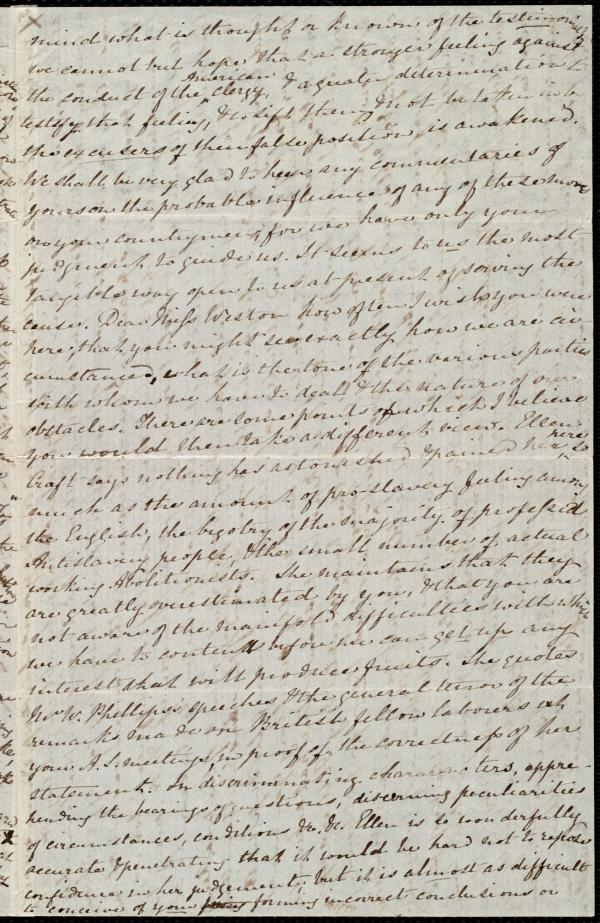 mind what is thought or known of the testimonies
we cannot but hope that a stronger feeling against
the conduct of the American Clergy, & a greater determination to
testify that feeling, & to sift them, & not be taken in by
the excusers of their false position, is awakened.
We shall be very glad to hear any commentaries of
yours on the probable influence of any of these move
on your countrymen, for we have only your
judgment to guide us. It seems to us the most
tangible way open to us at present of serving the
cause. Dear Miss Weston how often I wish you were
here, that you might see exactly how we are cir
cumstanced, what is the tone of the various parties
with whom we have to deal & the nature of our
obstacles. There are some points of which I believe
you would then take a different view. Ellen
Craft says nothing has astonished & pained her here, so
much as the amount of pro-slavery feeling among
the English, the bigotry of the majority of professed
Antislavery people, & the small number of actual
working Abolitionists. She maintains that they
are greatly overestimated by you, & that you are
not aware of the manifold difficulties with which
we have to contend before we can get up any
interest that will produce fruits. She quotes
Mr W. Phillips's speeches & the general tenor of the
remarks made on British fellow labourers at
your A.S. meetings in proof of the correctness of her
statement. On discriminating characters, appre-
hending the bearings of questions, discerning peculiarities
of circumstances, conditions &c. &c. Ellen is so wonderfully
accurate & penetrating that it would be hard not to repose
confidence in her judgement; but it is almost as difficult
to conceive of your forming incorrect conclusions or